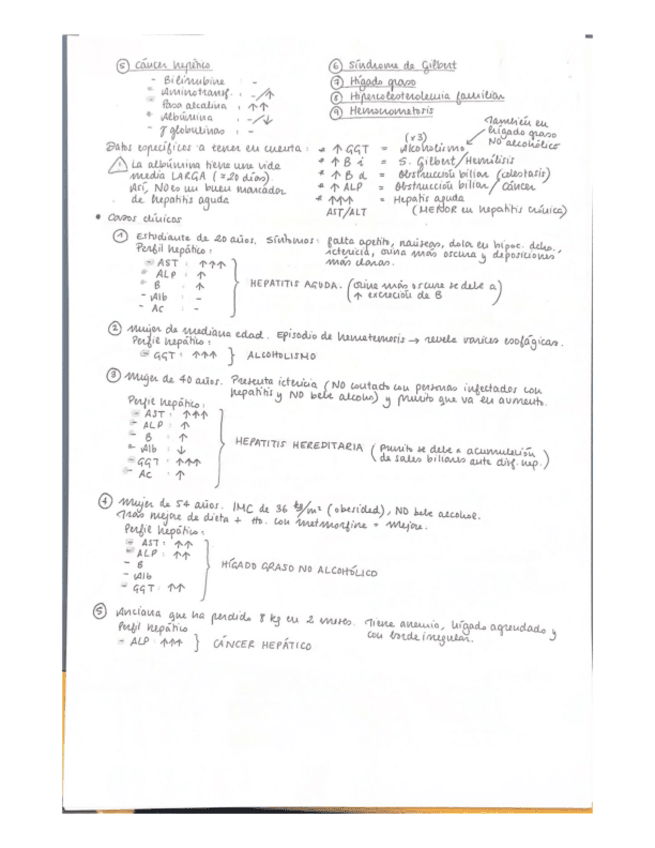 ⑤ Cáncer hepático
- Bilirrubina : -
- Aminotransf. : -/↑
- Fosa alcalina : ↑↑
- Albúmina : -/↓
- γ globulinas : -
⑥ Síndrome de Gilbert
⑦ Hígado graso
⑧ Hipercolesterolemia familiar
⑨ Hemocromatosis
Datos específicos a tener en cuenta :
⚠ La albúmina tiene una vida
media LARGA (≈ 20 días).
Así, NO es un buen marcador
de hepatitis aguda
* ↑ GGT = Alcoholismo (x3)
También en
hígado graso
NO alcohólico
* ↑ B i = S. Gilbert / Hemólisis
* ↑ B d = Obstrucción biliar (colestasis)
* ↑ ALP = Obstrucción biliar / Cáncer
* ↑↑↑ AST/ALT = Hepatis aguda
(MENOR en hepatitis crónica)
• Casos clínicos
① Estudiante de 20 años. Síntomas : falta apetito, naúseas, dolor en hipoc. dcho.,
ictericia, orina más oscura y deposiciones
más claras.
Perfil hepático :
- AST : ↑↑↑
- ALP : ↑
- B : ↑
- Alb : -
- AC : -
HEPATITIS AGUDA. (Orina más oscura se debe a
↑ excreción de B)
② Mujer de mediana edad. Episodio de hematemesis → revela varices esofágicas.
Perfil hepático :
- GGT : ↑↑↑ } ALCOHOLISMO
③ Mujer de 40 años. Presenta ictericia (NO contacto con personas infectados con
hepatitis y NO bebe alcohol) y prurito que va en aumento.
Perfil hepático :
- AST : ↑↑↑
- ALP : ↑
- B : ↑
- Alb : ↓
- GGT : ↑↑↑
- AC : ↑
HEPATITIS HEREDITARIA (Prurito se debe a acumulación
de sales biliares ante disf. hep.)
④ Mujer de 54 años. IMC de 36 kg/m² (obesidad), NO bebe alcohol.
Tras mejora de dieta + tto. con metmorfina = mejora.
Perfil hepático :
- AST : ↑↑
- ALP : ↑↑
- B
- Alb
- GGT : ↑↑
HÍGADO GRASO NO ALCOHÓLICO
⑤ Anciana que ha perdido 8 kg en 2 meses. Tiene anemia, hígado agrandado y
con borde irregular.
Perfil hepático
- ALP : ↑↑↑ } CÁNCER HEPÁTICO